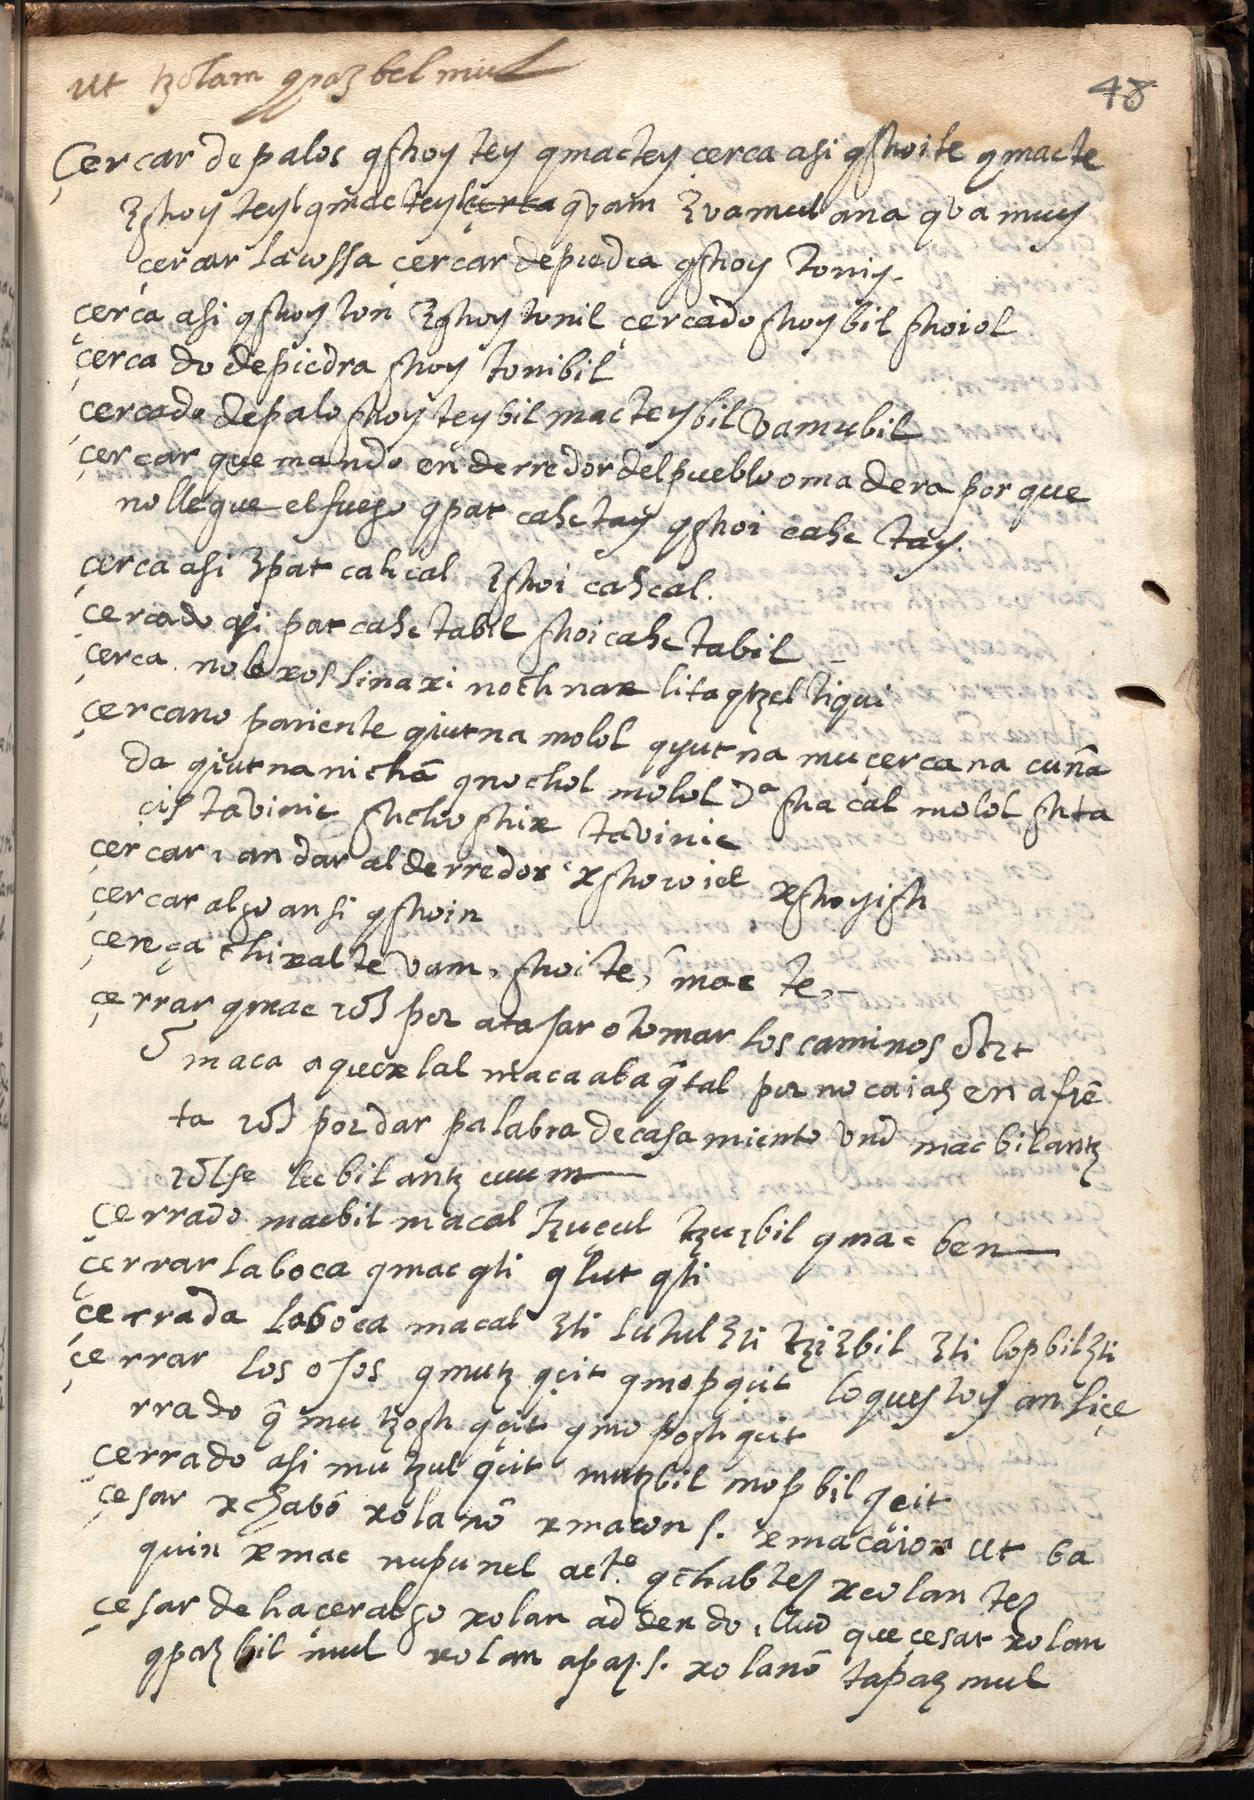 ut tzolam qpaz bel mul
48
Çercar de palos qshoy tey qmactey çerca asi qshoite qmacte
zshoy teyl qmacteyl çerca qvam zvamul ana qvamuy
çercar la cossa çercar de piedra qshoy toniy.
çerca asi qshoy ton zshoy tonil çercado shoybil shoiol
çercado de piedra shoy tonibil
çercado de palo shoy teybil macteybil vamubil
çercar quemando en derredor del pueblo o madera por que
no llegue el fuego qpat cahc tay qshoi cahc tay.
çerca asi zpat cahcal zshoi cahcal.
çercado asi pat cahc tabil shoi cahc tabil
çerca no lexos sinaxi nochnax lita qtzel tiqui
çercano pariente qiutna molol qyutna mu çercana cuñā
da qiutna nichā qnochol molol da shacal molol shta
çis tavinic shcho shix tavinic
çercar, andar al derredor xshoioiel xshoyish
çercar algo ansi qshoin
çerça chixalte vam, shoite, mac te,
çerrar qmac por atajar o tomar los caminos
maca aquexlal maca aba qtal por no caiaz en afrē
ta por dar palabra de casamiento macbil antz
lecbil antz cuum
çerrado macbil macal tzucul tzuzbil qmac ben
çerrar la boca qmac qti qlut qti
çerrada la boca macal zti lutul zti tzizbil zti lopbil zti
çerrar los ojos qmutz qçit qmop qçit lo que stoy ansi çe
rrado q mutzosh qçit qmoposh qçit
çerrado asi mutzul qçit mutzbil mopbil qçit
çesar xchabō xolanō xmacon s. xmacaion ut ba
quin xmac nupunel act.º qchabtez xcolantez
çesar de hacer algo xolan addendo que çesar xolan
qpazbil mul xolan apaz. s. xolanō tapaz mul